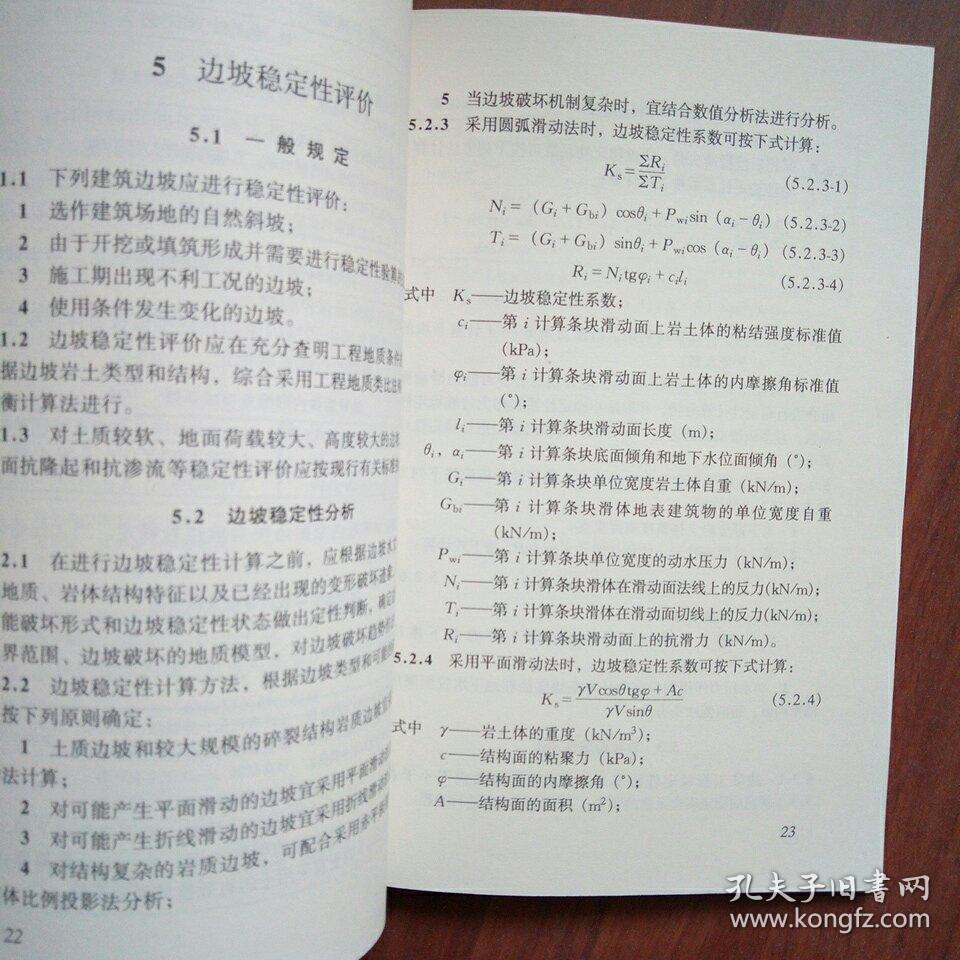 5 边坡稳定性评价
5.1 一般规定
1.1 下列建筑边坡应进行稳定性评价：
1 选作建筑场地的自然斜坡；
2 由于开挖或填筑形成并需要进行稳定性验算的
3 施工期出现不利工况的边坡；
4 使用条件发生变化的边坡。
1.2 边坡稳定性评价应在充分查明工程地质条件
据边坡岩土类型和结构，综合采用工程地质类比
衡计算法进行。
1.3 对土质较软、地面荷载较大、高度较大的边
面抗隆起和抗渗流等稳定性评价应按现行有关标准
5.2 边坡稳定性分析
2.1 在进行边坡稳定性计算之前，应根据边坡水
地质、岩体结构特征以及已经出现的变形破坏迹象
能破坏形式和边坡稳定性状态做出定性判断，确定
界范围、边坡破坏的地质模型，对边坡破坏趋势
2.2 边坡稳定性计算方法，根据边坡类型和可能
按下列原则确定：
1 土质边坡和较大规模的碎裂结构岩质边坡宜
法计算；
2 对可能产生平面滑动的边坡宜采用平面滑动
3 对可能产生折线滑动的边坡宜采用折线滑动
4 对结构复杂的岩质边坡，可配合采用赤平
体比例投影法分析；
22
5 当边坡破坏机制复杂时，宜结合数值分析法进行分析。
5.2.3 采用圆弧滑动法时，边坡稳定性系数可按下式计算：
Ks=ΣRi/ΣTi (5.2.3-1)
Ni=（Gi+Gbi）cosθi+Pwisin（αi-θi）(5.2.3-2)
Ti=（Gi+Gbi）sinθi+Pwicos（αi-θi）(5.2.3-3)
Ri=Nitgφi+cili (5.2.3-4)
式中 Ks——边坡稳定性系数；
ci——第 i 计算条块滑动面上岩土体的粘结强度标准值
(kPa)；
φi——第 i 计算条块滑动面上岩土体的内摩擦角标准值
(°)；
li——第 i 计算条块滑动面长度（m）；
θi，αi——第 i 计算条块底面倾角和地下水位面倾角（°）；
Gi——第 i 计算条块单位宽度岩土体自重（kN/m）；
Gbi——第 i 计算条块滑体地表建筑物的单位宽度自重
(kN/m)；
Pwi——第 i 计算条块单位宽度的动水压力（kN/m）；
Ni——第 i 计算条块滑体在滑动面法线上的反力(kN/m)；
Ti——第 i 计算条块滑体在滑动面切线上的反力(kN/m)；
Ri——第 i 计算条块滑动面上的抗滑力（kN/m）。
5.2.4 采用平面滑动法时，边坡稳定性系数可按下式计算：
Ks=(γVcosθtgφ+Ac)/(γVsinθ) (5.2.4)
式中 γ——岩土体的重度（kN/m³）；
c——结构面的粘聚力（kPa）；
φ——结构面的内摩擦角（°）；
A——结构面的面积（m²）；
23
孔夫子旧書网
www.kongfz.com